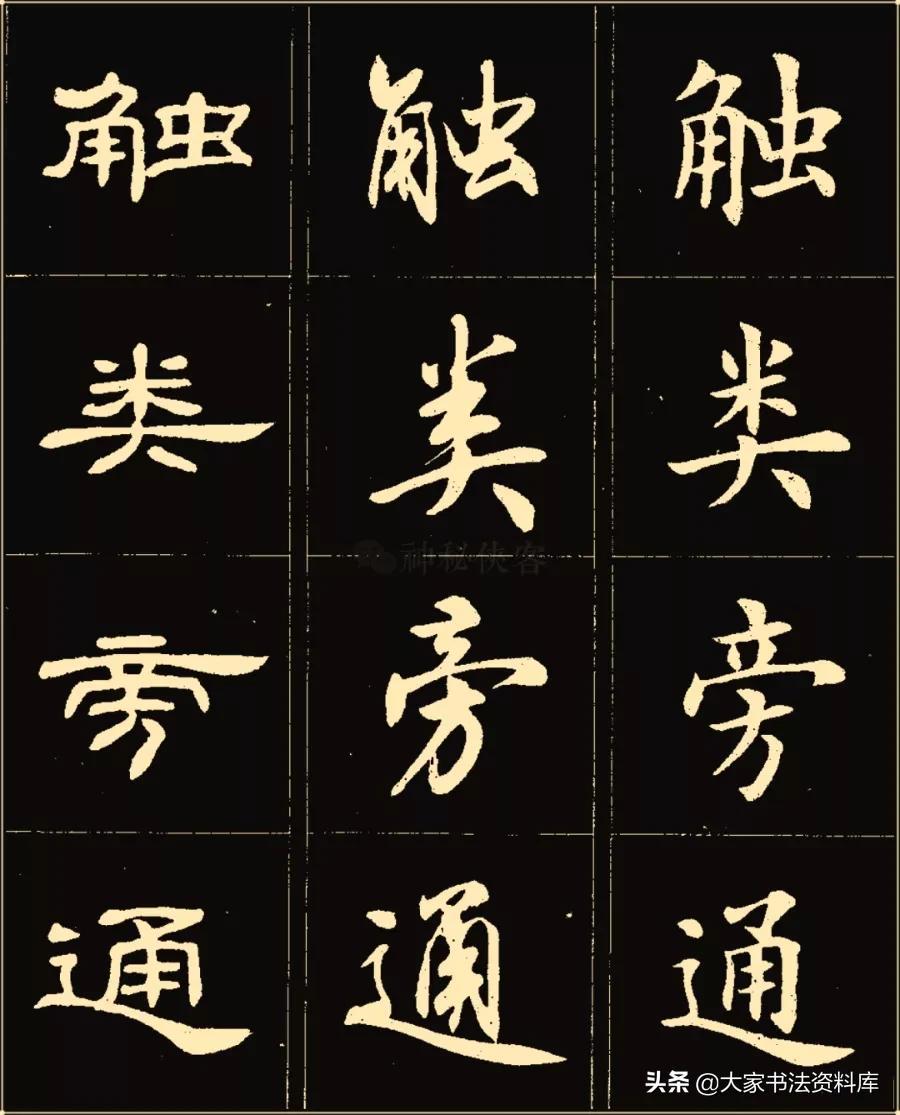 触 触 触
类 类 类
神秘侠客
旁 旁 旁
通 通 通
头条 @大家书法资料库